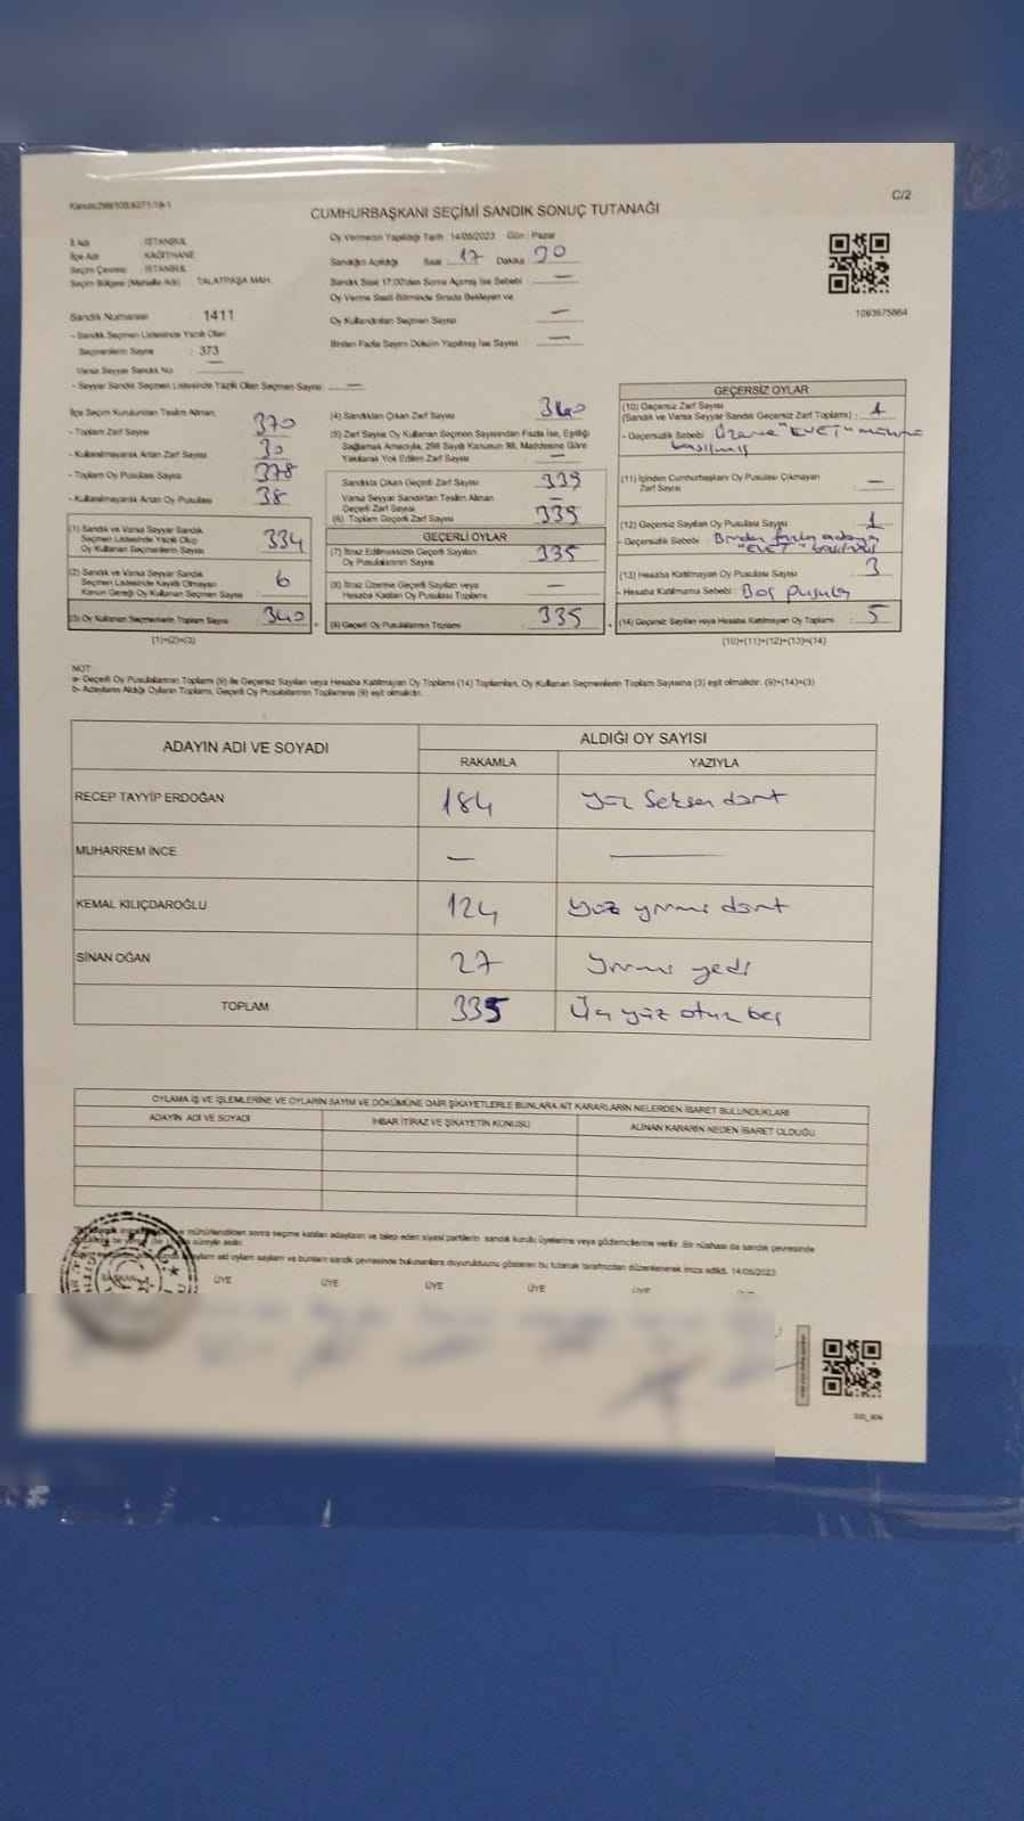 Kanun:298/105,6271/19-1
C/2
CUMHURBAŞKANI SEÇİMİ SANDIK SONUÇ TUTANAĞI
İli Adı İSTANBUL
İlçe Adı KAĞITHANE
Seçim Çevresi İSTANBUL
Seçim Bölgesi (Mahalle Adı) TALATPAŞA MAH.
Oy Vermenin Yapıldığı Tarih : 14/05/2023 Gün : Pazar
Sandığın Açıldığı Saat : 17 Dakika
Sandık Saat 17:00'den Sonra Açılmış İse Sebebi : —
Oy Verme Saati Bitiminde Sırada Bekleyen ve
Oy Kullandırılan Seçmen Sayısı —
Birden Fazla Sayım Döküm Yapılmış İse Sayısı —
1093675864
Sandık Numarası 1411
- Sandık Seçmen Listesinde Yazılı Olan
Seçmenlerin Sayısı : 373
Varsa Seyyar Sandık No —
- Seyyar Sandık Seçmen Listesinde Yazılı Olan Seçmen Sayısı : —
İlçe Seçim Kurulundan Teslim Alınan;
- Toplam Zarf Sayısı 370
- Kullanılmayarak Artan Zarf Sayısı 30
- Toplam Oy Pusulası Sayısı 378
- Kullanılmayarak Artan Oy Pusulası 38
(1) Sandık ve Varsa Seyyar Sandık
Seçmen Listesinde Yazılı Olup
Oy Kullanan Seçmenlerin Sayısı 334
(2) Sandık ve Varsa Seyyar Sandık
Seçmen Listesinde Kayıtlı Olmayan
Kanun Gereği Oy Kullanan Seçmen Sayısı 6
(3) Oy Kullanan Seçmenlerin Toplam Sayısı 340
(1)+(2)=(3)
(4) Sandıktan Çıkan Zarf Sayısı 340
(5) Zarf Sayısı Oy Kullanan Seçmen Sayısından Fazla İse, Eşitliği
Sağlamak Amacıyla, 298 Sayılı Kanunun 98. Maddesine Göre
Yakılarak Yok Edilen Zarf Sayısı —
Sandıkta Çıkan Geçerli Zarf Sayısı 339
Varsa Seyyar Sandıktan Teslim Alınan
Geçerli Zarf Sayısı —
(6) Toplam Geçerli Zarf Sayısı 339
GEÇERLİ OYLAR
(7) İtiraz Edilmeksizin Geçerli Sayılan
Oy Pusulalarının Sayısı 335
(8) İtiraz Üzerine Geçerli Sayılan veya
Hesaba Katılan Oy Pusulası Toplamı —
(9) Geçerli Oy Pusulalarının Toplamı 335
GEÇERSİZ OYLAR
(10) Geçersiz Zarf Sayısı
(Sandık ve Varsa Seyyar Sandık Geçersiz Zarf Toplamı) : 1
- Geçersizlik Sebebi : Üzerine "EVET" mührü
basılmış
(11) İçinden Cumhurbaşkanı Oy Pusulası Çıkmayan
Zarf Sayısı —
(12) Geçersiz Sayılan Oy Pusulası Sayısı 1
- Geçersizlik Sebebi : Birden fazla adaya
"EVET"
(13) Hesaba Katılmayan Oy Pusulası Sayısı 3
- Hesaba Katılmama Sebebi : Boş pusula
(14) Geçersiz Sayılan veya Hesaba Katılmayan Oy Toplamı : 5
(10)+(11)+(12)+(13)=(14)
NOT :
a- Geçerli Oy Pusulalarının Toplamı (9) ile Geçersiz Sayılan veya Hesaba Katılmayan Oy Toplamı (14) Toplamları, Oy Kullanan Seçmenlerin Toplam Sayısına (3) eşit olmalıdır. (9)+(14)=(3)
b- Adayların Aldığı Oyların Toplamı, Geçerli Oy Pusulalarının Toplamına (9) eşit olmalıdır.
ADAYIN ADI VE SOYADI ALDIĞI OY SAYISI
RAKAMLA YAZIYLA
RECEP TAYYİP ERDOĞAN 184 yüz seksen dört
MUHARREM İNCE — —
KEMAL KILIÇDAROĞLU 124 yüz yirmi dört
SİNAN OĞAN 27 yirmi yedi
TOPLAM 335 Üç yüz otuz beş
OYLAMA İŞ VE İŞLEMLERİNE VE OYLARIN SAYIM VE DÖKÜMÜNE DAİR ŞİKAYETLERLE BUNLARA AİT KARARLARIN NELERDEN İBARET BULUNDUKLARI
ADAYIN ADI VE SOYADI İHBAR İTİRAZ VE ŞİKAYETİN KONUSU ALINAN KARARIN NEDEN İBARET OLDUĞU
mühürlendikten sonra seçime katılan adayların ve talep eden siyasi partilerin sandık kurulu üyelerine veya gözlemcilerine verilir. Bir nüshası da sandık çevresinde
süreyle asılır.
bulunanlara duyurulduğunu gösteren bu tutanak tarafımızdan düzenlenerek imza edildi. 14/05/2023
T.C.
BAŞKAN ÜYE ÜYE ÜYE ÜYE ÜYE